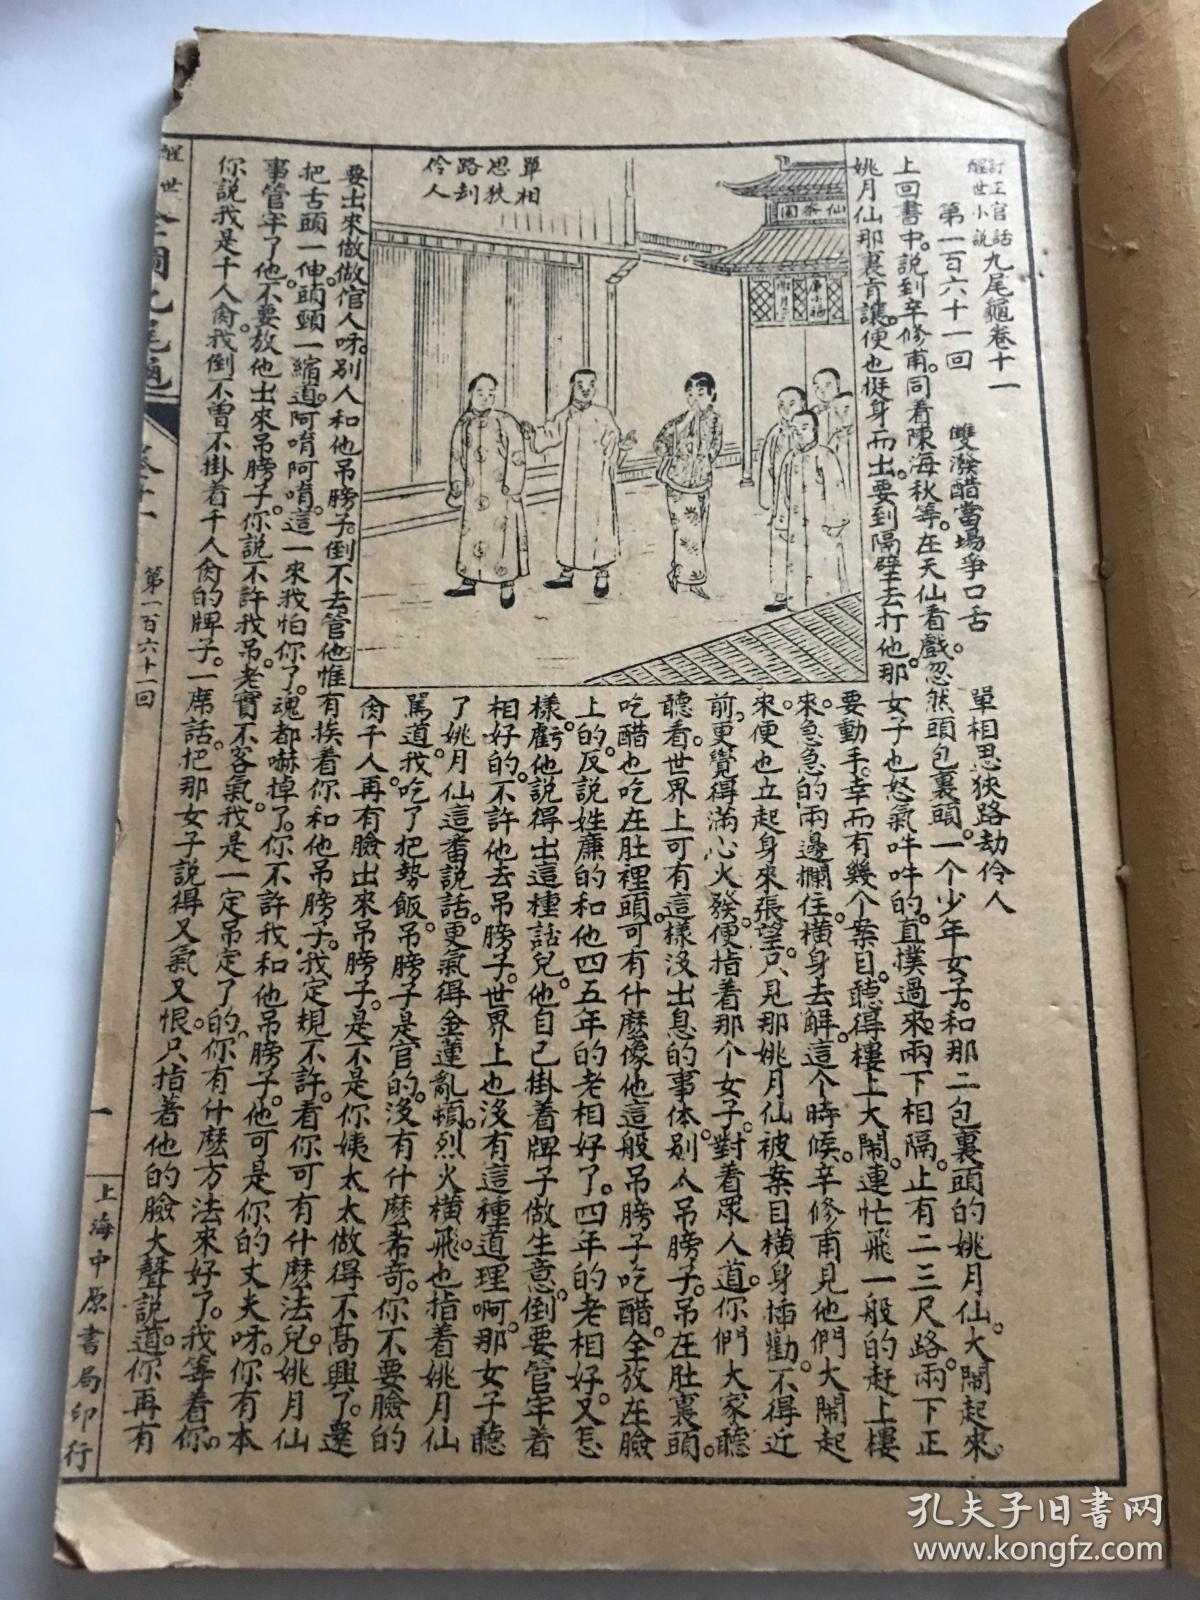 訂正官話
醒世小說
九尾龜卷十一
第一百六十一回　雙潑醋當場爭口舌　單相思狹路劫伶人
上回書中。說到辛修甫。同着陳海秋等。在天仙看戲。忽然頭包裏頭。一个少年女子。和那二包裏頭的姚月仙。大鬧起來。
姚月仙那裏肯讓。便也挺身而出。要到隔壁去打他。那女子也怒氣吽吽的。直撲過來。兩下相隔。止有二三尺路。兩下正
要動手。幸而有幾个案目。聽得樓上大鬧。連忙飛一般的赶上樓
來。急急的兩邊攔住。橫身去解。這个時候。辛修甫見他們大鬧起
來。便也立起身來張望。只見那姚月仙被案目橫身插勸。不得近
前。更覺得滿心火發。便指着那个女子。對着眾人道。你們大家聽
聽看。世界上可有這樣沒出息的事体。別人吊膀子。吊在肚裏頭。
吃醋也吃在肚裡頭。可有什麼像他這般吊膀子吃醋。全放在臉
上的。反說姓廉的和他四五年的老相好了。四年的老相好。又怎
樣。虧他說得出這種話兒。他自己掛着牌子做生意。倒要管牢着
相好的。不許他去吊膀子。世界上也沒有這種道理啊。那女子聽
了姚月仙這番說話。更氣得金蓮亂頓。烈火橫飛。也指着姚月仙
罵道。我吃了把勢飯。吊膀子是官的。沒有什麼希奇。你不要臉的
肏千人。再有臉出來吊膀子。是不是你姨太太做得不高興了。還
要出來做做倌人呀。別人和他吊膀子。倒不去管他。惟有挨着你和他吊膀子。我定規不許。看你可有什麼法兒。姚月仙
把舌頭一伸。頭頸一縮道。阿唷阿唷。這一來我怕你了。魂都嚇掉了。你不許我和他吊膀子。他可是你的丈夫呀。你有本
事管牢了他。不要放他出來吊膀子。你說不許我吊。老實不客氣。我是一定吊定了的。你有什麼方法來好了。我等着你。
你說我是千人肏。我倒不曾不掛着千人肏的牌子。一席話。把那女子說得又氣又恨。只指著他的臉大聲說道。你再有
單相
思狹
路刦
伶人
仙茶園
醒世
全圖九尾龜
卷十一
第一百六十一回
一
上海中原書局印行
孔夫子旧書网
www.kongfz.com